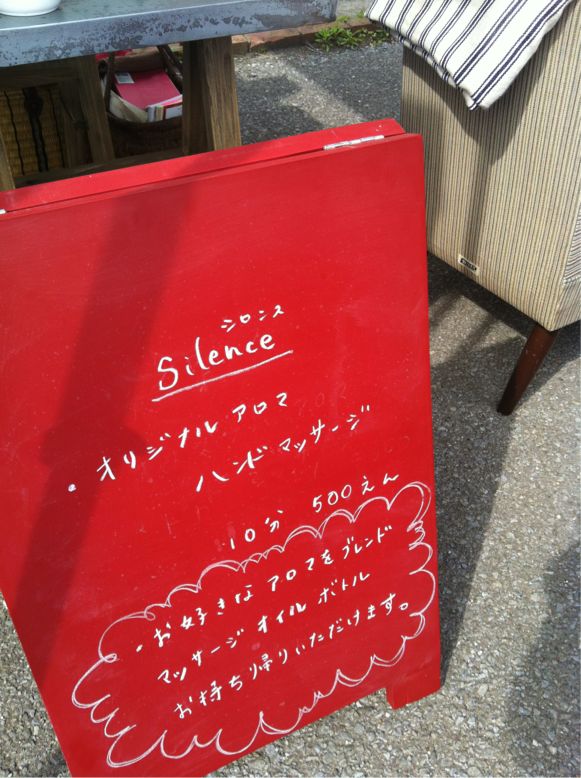 シロンス
Silence
・オリジナル アロマ
ハンドマッサージ
10分 500えん
・お好きな アロマをブレンド
マッサージ オイル ボトル
お持ち帰りいただけます。